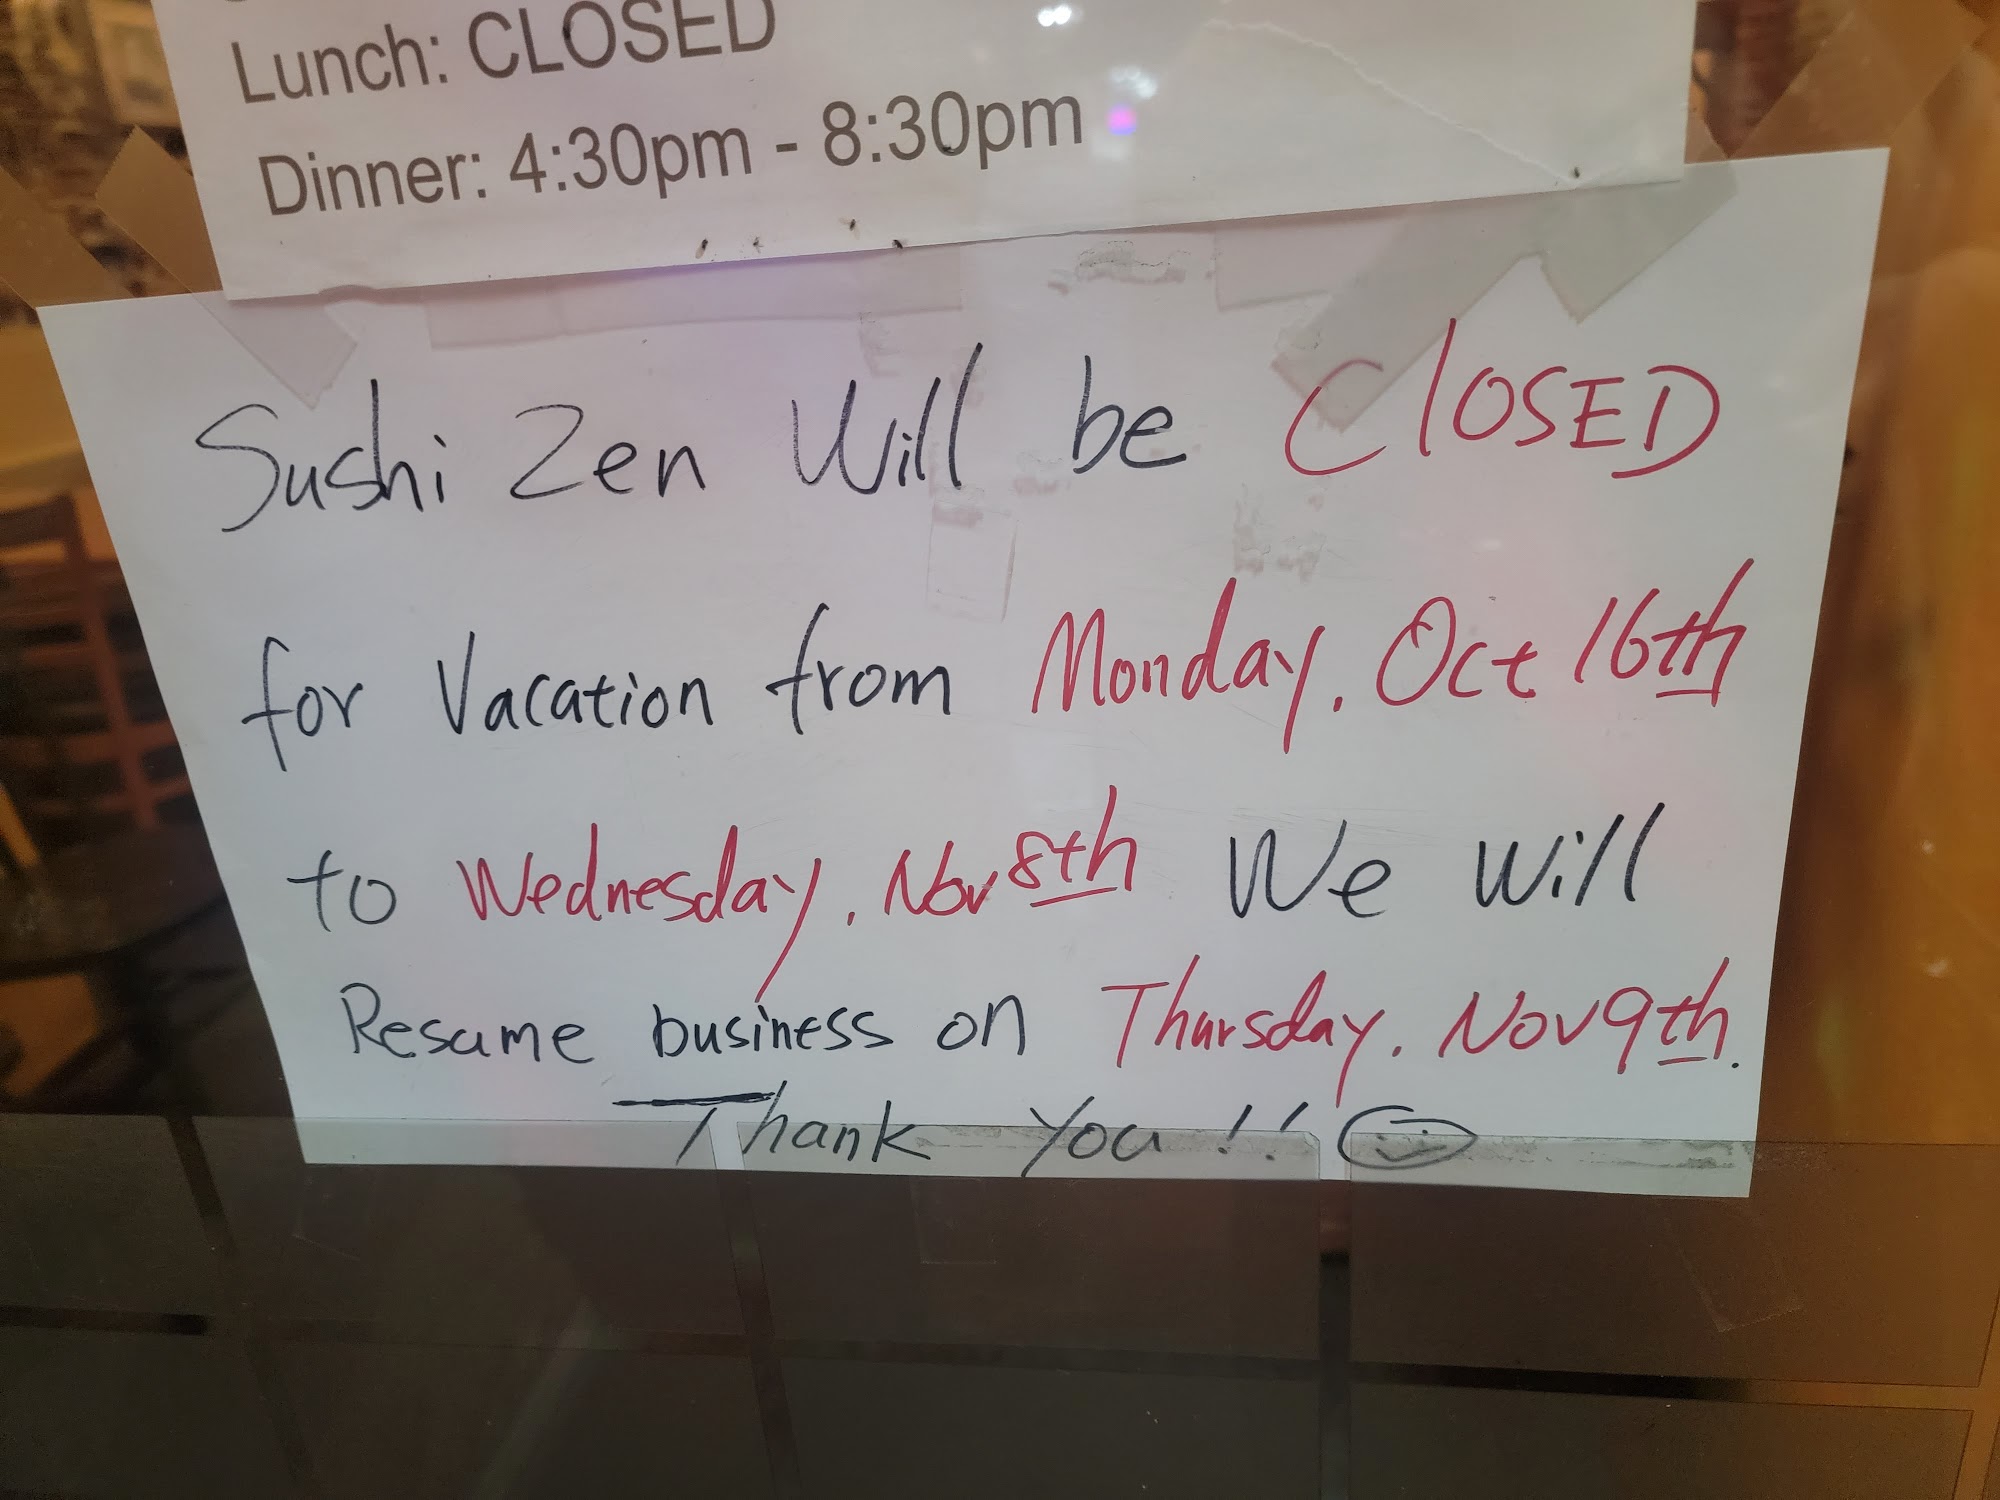 Lunch: CLOSED
Dinner: 4:30pm - 8:30pm
Sushi Zen Will be ClOSED
for Vacation from Monday. Oct 16th
to Wednesday. Nov 8th We Will
Resume business on Thursday. Nov 9th.
Thank You!!